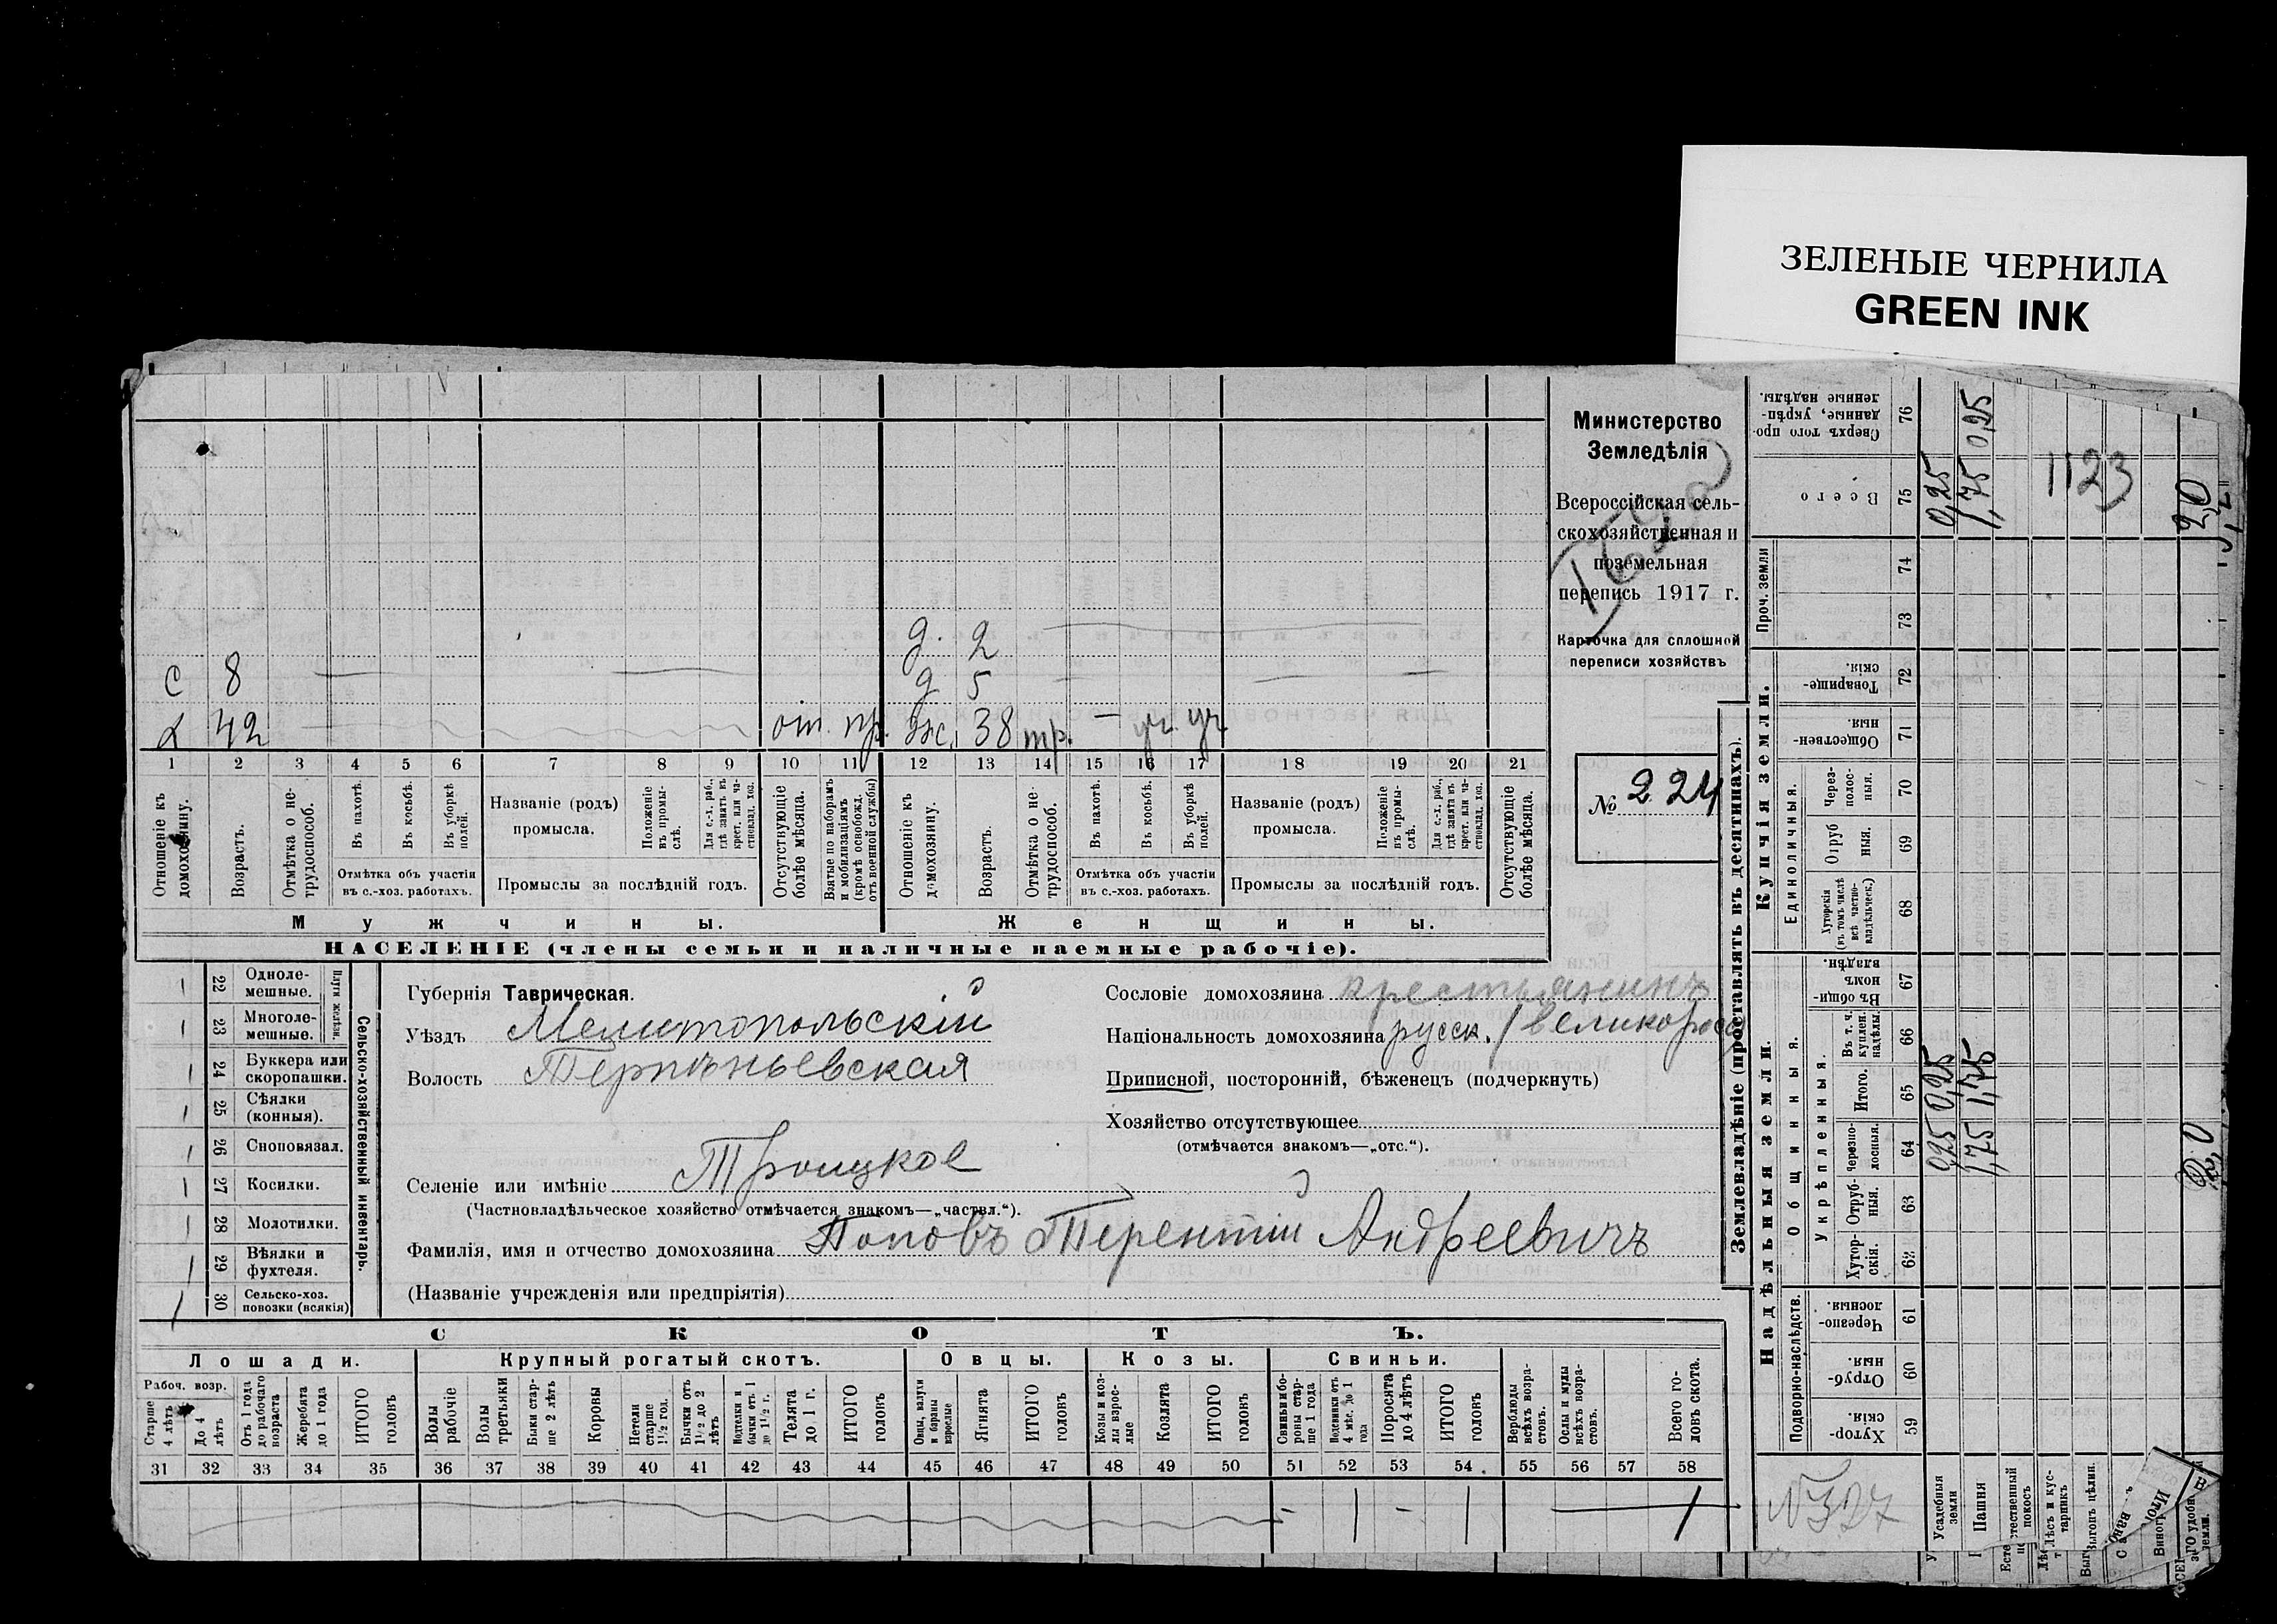 ЗЕЛЕНЫЕ ЧЕРНИЛА
GREEN INK
Министерство
Земледѣлія
Всероссійская сель-
скохозяйственная и
поземельная
перепись 1917 г.
Карточка для сплошной
переписи хозяйствъ
№ 224
д. 2
с 8 д 5
42 от. пр. ж. 38 тр. — уч. уч
1 2 3 4 5 6 7 8 9 10 11 12 13 14 15 16 17 18 19 20 21
Отношеніе къ домохозяину.
Возрастъ.
Отмѣтка о не-трудоспособ.
Въ пахотѣ.
Въ косьбѣ.
Въ уборкѣ полей.
Отмѣтка объ участіи
въ с.-хоз. работахъ.
Названіе (родъ)
промысла.
Положеніе въ промы-слѣ.
Для с.-х. раб., гдѣ занятъ въ крест. или ча-стновлад. хоз.
Промыслы за послѣдній годъ.
Отсутствующіе болѣе мѣсяца.
Взятые по наборамъ и мобилизаціямъ (кромѣ освобожд. отъ военной службы)
Отношеніе къ домохозяину.
Возрастъ.
Отмѣтка о не-трудоспособ.
Въ пахотѣ.
Въ косьбѣ.
Въ уборкѣ полей.
Отмѣтка объ участіи
въ с.-хоз. работахъ.
Названіе (родъ)
промысла.
Положеніе въ промы-слѣ.
Для с.-х. раб., гдѣ занята въ крест. или ча-стновлад. хоз.
Промыслы за послѣдній годъ.
Отсутствующіе болѣе мѣсяца.
Мужчины. Женщины.
НАСЕЛЕНІЕ (члены семьи и наличные наемные рабочіе).
Сельско-хозяйственный инвентарь.
Плуги желѣзн.
22 Одноле-мешные.
23 Многоле-мешные.
24 Буккера или скоропашки.
25 Сѣялки (конныя).
26 Сноповязал.
27 Косилки.
28 Молотилки.
29 Вѣялки и фухтеля.
30 Сельско-хоз. повозки (всякія)
Губернія Таврическая.
Уѣздъ Мелитопольскій
Волость Терпѣньевская
Селеніе или имѣніе Троицкое
(Частновладѣльческое хозяйство отмѣчается знакомъ—„частвл.“).
Фамилія, имя и отчество домохозяина Поповъ Терентій Андреевичъ
(Названіе учрежденія или предпріятія)
Сословіе домохозяина крестьянинъ
Національность домохозяина русск. / великоросс
Приписной, посторонній, бѣженецъ (подчеркнуть)
Хозяйство отсутствующее
(отмѣчается знакомъ—„отс.“).
СКОТЪ.
Лошади. Крупный рогатый скотъ. Овцы. Козы. Свиньи.
Рабоч. возр.
Старше 4 лѣтъ
До 4 лѣтъ
Отъ 1 года до рабочаго возраста
Жеребята до 1 года
ИТОГО головъ
Волы рабочіе
Волы третьяки
Быки стар-ше 2 лѣтъ
Коровы
Нетели старше 1½ год.
Бычки отъ 1½ до 2 лѣтъ
Подтелки и бычки отъ 1 до 1½ г.
Телята до 1 г.
ИТОГО головъ
Овцы, валухи и бараны взрослые
Ягнята
ИТОГО головъ
Козы и коз-лы взрос-лые
Козлята
ИТОГО головъ
Свиньи и бо-ровы стар-ше 1 года
Подсвинки отъ 4 мѣс. до 1 года
Поросята до 4 лѣтъ
ИТОГО головъ
Верблюды всѣхъ возра-стовъ.
Ослы и мулы всѣхъ возра-стовъ.
Всего го-ловъ скота.
31 32 33 34 35 36 37 38 39 40 41 42 43 44 45 46 47 48 49 50 51 52 53 54 55 56 57 58
- 1 - 1 — 1
Землевладѣніе (проставлять въ десятинахъ).
Надѣльныя земли. Купчія земли. Проч. земли
Подворно-наслѣдств.
Общинныя.
Укрѣпленныя.
Единоличныя.
Хутор-скія. 59
Отруб-ныя. 60
Черезпо-лосныя. 61
Хутор-скія. 62
Отруб-ныя. 63
Черезпо-лосныя. 64
Итого. 65
Въ т. ч. куплен. надѣлы. 66
Въ общин-номъ владѣн. 67
Хуторскія (въ томъ числѣ всѣ частно-владѣльческ.) 68
Отруб ныя. 69
Через-полос-ныя. 70
Обществен-ныя. 71
Товарище-скія. 72
73
74
Всего 75
Сверхъ того про-данные, укрѣп-ленные надѣлы. 76
Усадебныя земли 0,25 0,25 0,25
Пашня 1,75 1,75 1,75 0,25
Естественный покосъ
Лѣсъ и кус-тарникъ
Выгонъ цѣлин.
1123
2,0
2,0
№327